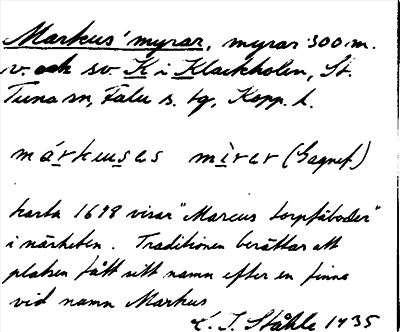 Markus' myrar, myrar 300 m.
v. och sv. K i Klackholen, St.
Tuna sn, Falu s. tg, Kopp. l.
márkuses mìrer (Gagnef.)
karta 1698 visar "Marcus torpfäboder"
i närheten. Traditionen berättar att
platsen fått sitt namn efter en finne
vid namn Markus
E. I. Ståhle 1935